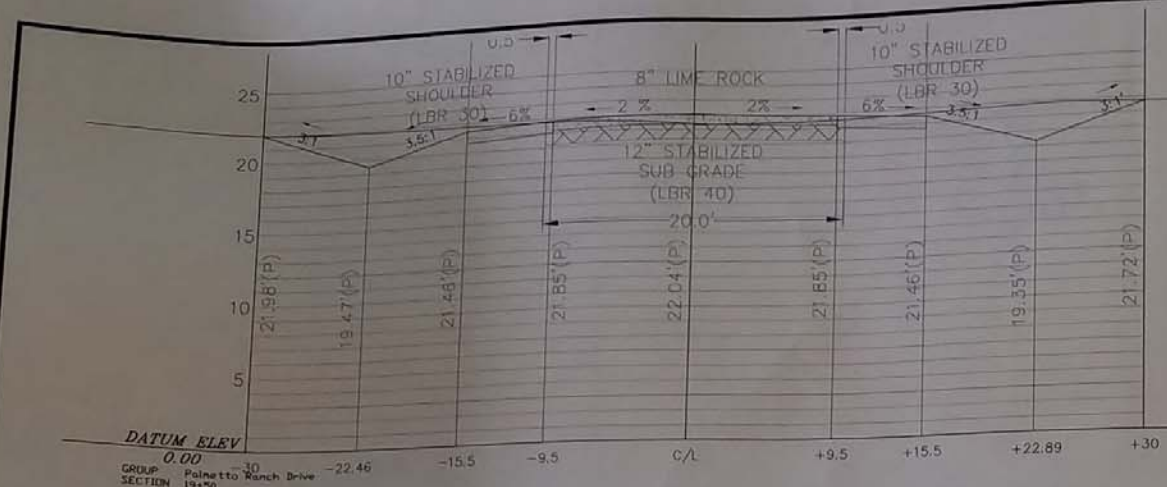 0.5
0.5
10" STABILIZED
SHOULDER
(LBR 30)
8" LIME ROCK
10" STABILIZED
SHOULDER
(LBR 30)
25
3:1
3.5:1
6%
2 %
2%
6%
3.5:1
3:1
20
12" STABILIZED
SUB GRADE
(LBR 40)
20.0'
15
21.98'(P)
19.47'(P)
21.46'(P)
21.85'(P)
22.04'(P)
21.85'(P)
21.46'(P)
19.35'(P)
21.72'(P)
10
5
DATUM ELEV
0.00
-30
-22.46
-15.5
-9.5
C/L
+9.5
+15.5
+22.89
+30
GROUP Palmetto Ranch Drive
SECTION 19+50